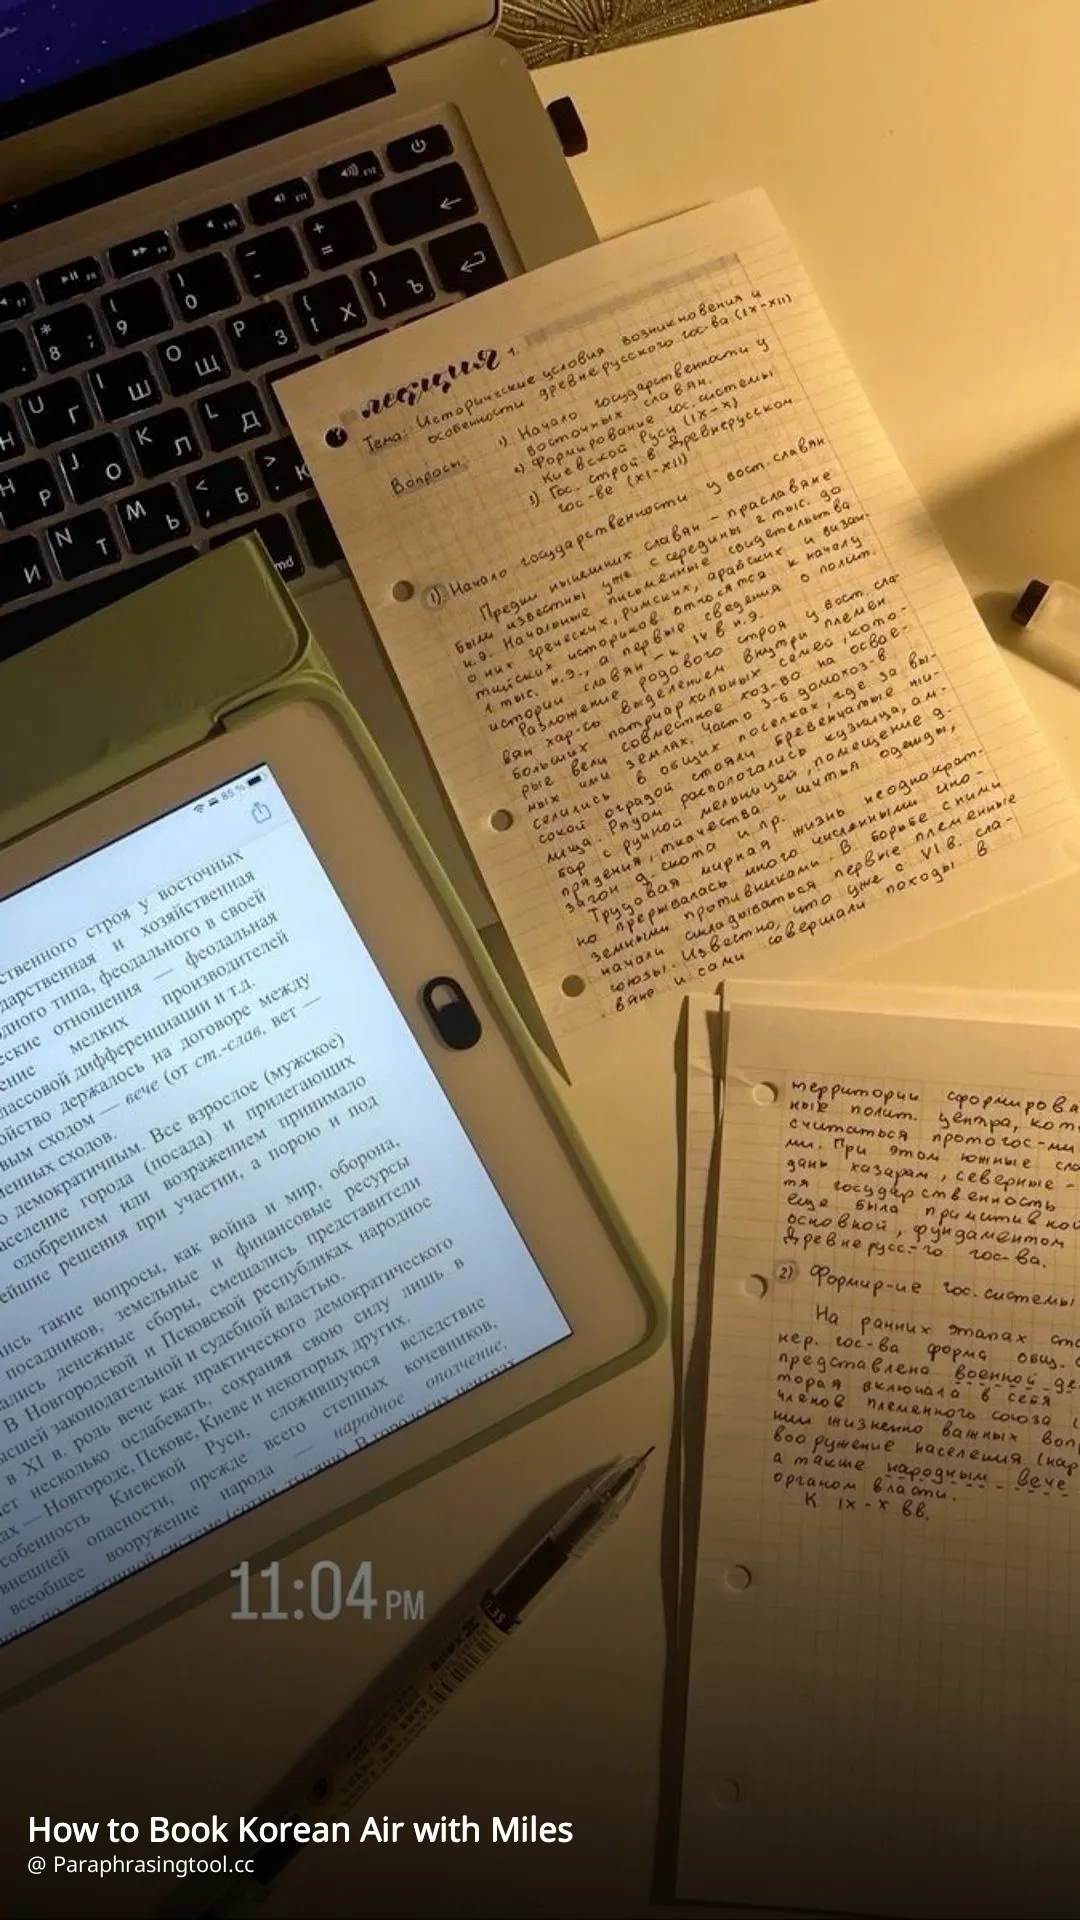 лекция 1.
Тема: Исторические условия возникновения и
особенности древнерусского гос-ва (IX-XII)
Вопросы:
1) Начало государственности у
восточных славян.
2) Формирование гос. системы
Киевской Руси (IX-X)
3) Гос. строй в Древнерусском
гос-ве (XI-XII)
1) Начало государственности у вост. славян
Предки нынешних славян - праславяне
были известны уже с середины 2 тыс. до
н.э. Начальные письменные свидетельства
о них греческих, римских, арабских и визан-
тийских историков относятся к началу
1 тыс. н.э., а первые сведения о полит.
истории славян - к IV в н.э.
Разложение родового строя у вост. сла-
вян хар-сь выделением внутри племен
больших патриархальных семей, кото-
рые вели совместное хоз-во на освое-
ных ими землях. Часто 3-6 домохоз-в
селились в общих поселках, где за вы-
сокой оградой стояли бревенчатые жи-
лища. Рядом распологались кузница, ам-
бар с ручной мельницей, помещение д.
прядения, ткачества и шитья одежды,
загон д. скота и пр.
Трудовая мирная жизнь неоднократ-
но прерывалась много численными ино-
земными противниками. В борьбе с ними
начали складываться первые племенные
союзы. Известно, что уже с VI в. сла-
вяне и сами совершали походы в
85 %
ственного строя у восточных
дарственная и хозяйственная
дного типа, феодального в своей
ские отношения — феодальная
ение мелких производителей
лассовой дифференциации и т.д.
ойство держалось на договоре между
вым сходом — вече (от ст.-слав. вет —
менных сходов.
о демократичным. Все взрослое (мужское)
аселение города (посада) и прилегающих
одобрением или возражением принимало
ейшие решения при участии, а порою и под
ись такие вопросы, как война и мир, оборона,
посадников, земельные и финансовые ресурсы
ались денежные сборы, смещались представители
В Новгородской и Псковской республиках народное
ысшей законодательной и судебной властью.
в XI в. роль вече как практического демократического
ет несколько ослабевать, сохраняя свою силу лишь в
ах — Новгороде, Пскове, Киеве и некоторых других.
собенность Киевской Руси, сложившуюся вследствие
внешней опасности, прежде всего степных кочевников,
всеобщее вооружение народа — народное ополчение,
ное по десятинной системе (сотни, тысячи). В городских центрах
территории сформирова
ные полит. центра, кот
считаться протогос-ми
ми. При этом южные сло
дань хазарам, северные -
тя государственность
еще была примитивной
основной, фундаментом
Древнерусс-го гос-ва.
2) Формир-ие гос. системы
На ранних этапах ста
кер. гос-ва форма общ.
представлена военной де
торая включала в себя
членов племенного союза (
нии жизненно важных вопр
вооружение населения (нар
а также народным вече
органом власти.
К IX-X вв.
11:04 PM
How to Book Korean Air with Miles
@ Paraphrasingtool.cc